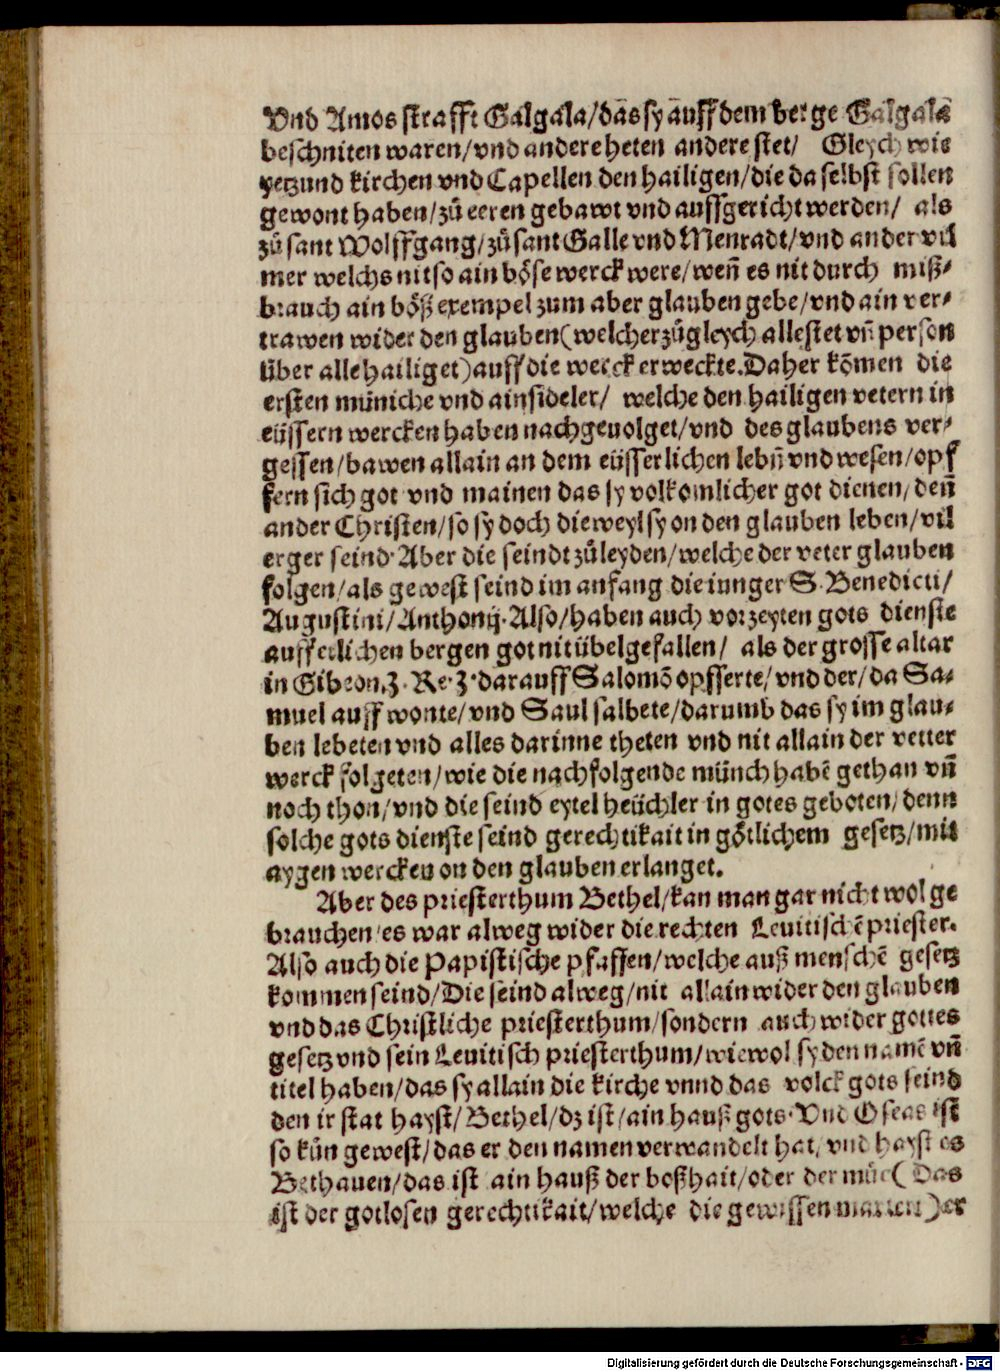 Vnd Amos strafft Galgala/das sy auff dem berge Galgala
beschniten waren/vnd andere heten andere stet/ Gleych wie
yetzund kirchen vnd Capellen den hailigen/die da selbst sollen
gewont haben/zů eeren gebawt vnd auffgericht werden/ als
zů sant Wolffgang/zů sant Galle vnd Menradt/vnd ander vil
mer welchs nit so ain böse werck were/weñ es nit durch miß⸗
brauch ain böß exempel zum aber glauben gebe/vnd ain ver⸗
trawen wider den glauben(welcher zůgleych alle stet vñ person
über alle hailiget)auff die werck erweckte.Daher kõmen die
ersten müniche vnd ainsideler/ welche den hailigen vetern in
eüssern wercken haben nachgeuolget/vnd des glaubens ver⸗
gessen/bawen allain an dem eüsserlichen lebñ vnd wesen/opf
fern sich got vnd mainen das sy volkomlicher got dienen/deñ
ander Christen/so sy doch dieweyl sy on den glauben leben/vil
erger seind·Aber die seindt zůleyden/welche der veter glauben
folgen/als gewest seind im anfang die iunger S·Benedicti/
Augustini/Anthonij·Also/haben auch vorzeyten gots dienste
auff etlichen bergen got nit übel gefallen/ als der grosse altar
in Gibeon.3·Re·3·darauff Salomõ opfferte/vnd der/da Sa⸗
muel auff wonte/vnd Saul salbete/darumb das sy im glau⸗
ben lebeten vnd alles darinne theten vnd nit allain der vetter
werck folgeten/wie die nachfolgende münch habẽ gethan vñ
noch thon/vnd die seind eytel heüchler in gotes geboten/denn
solche gots dienste seind gerechtikait in götlichem gesetz/mit
aygen wercken on den glauben erlanget.
Aber des priesterthum Bethel/kan man gar nicht wol ge
brauchen/es war alweg wider die rechten Leuitischẽ priester.
Also auch die Papistische pfaffen/welche auß menschẽ gesetz
kommen seind/Die seind alweg/nit allain wider den glauben
vnd das Christliche priesterthum/sondern auch wider gottes
gesetz vnd sein Leuitisch priesterthum/wiewol sy den namẽ vñ
titel haben/das sy allain die kirche vnnd das volck gots seind
den ir stat hayst/Bethel/dz ist/ain hauß gots·Vnd Oseas ist
so kün gewest/das er den namen verwandelt hat/vnd hayst es
Bethauen/das ist ain hauß der boßhait/oder der müe(Das
ist der gotlosen gerechtikait/welche die gewissen marten)er
Digitalisierung gefördert durch die Deutsche Forschungsgemeinschaft - DFG